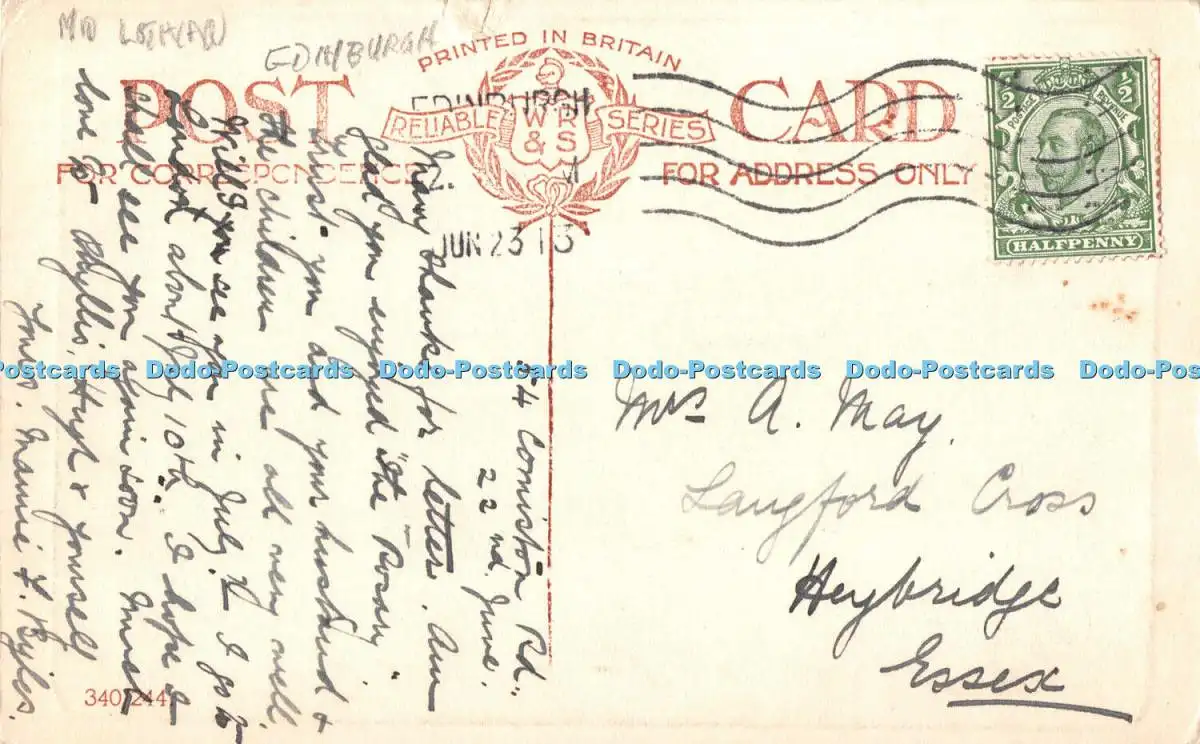 MID LOTHIAN
EDINBURGH
PRINTED IN BRITAIN
POST CARD
RELIABLE WR & S SERIES
FOR CORRESPONDENCE
FOR ADDRESS ONLY
EDINBURGH
JUN 23 13
½ ½
POSTAGE REVENUE
HALFPENNY
54 Comiston Rd.,
22nd. June.
Many thanks for letter. Am
glad you enjoyed "the Rosary".
I trust you and your husband &
the children are all very well.
Will you see in July if I go to
London about July 10th. I hope I
shall see you again soon. Much
love to Phyllis, Hugh & yourself
from. Mamie F. Byles.
Mrs A. May.
Langford Cross
Heybridge
Essex
340/244
Dodo-Postcards Dodo-Postcards Dodo-Postcards Dodo-Postcards Dodo-Postcards Dodo-Postcards